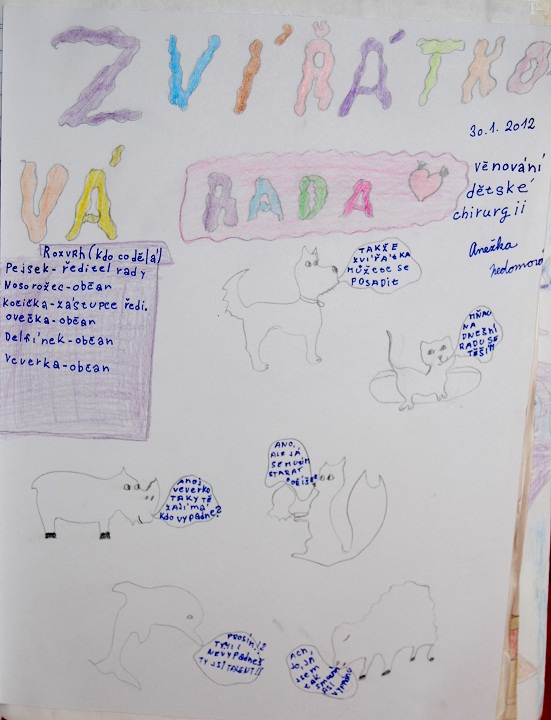 ZVÍŘÁTKO
VÁ RADA
30.1. 2012
věnování
dětské
chirurgii
Anežka
Rozvrh (kdo co dělá)
Pejsek-ředitel rady
Nosorožec-občan
Kočička-zástupce ředi.
ovečka-občan
Delfínek-občan
Veverka-občan
TAKŽE
ZVÍŘÁTKA
MŮŽETE SE
POSADIT
MŇAU
NA
DNEŠNÍ
RADU SE
TĚŠÍM
ANO,
ALE JÁ
SE MUSÍM
STARAT
O
AHOJ
VEVERKO
TAKY TĚ
ZAJÍMÁ
kdo vypadne?
PROSÍM
TY
NEVYPADNEŠ
TY JSI TALENT!!
ACH,
JO, JÁ
JSEM
TAK
SMUTNÁ
ASI